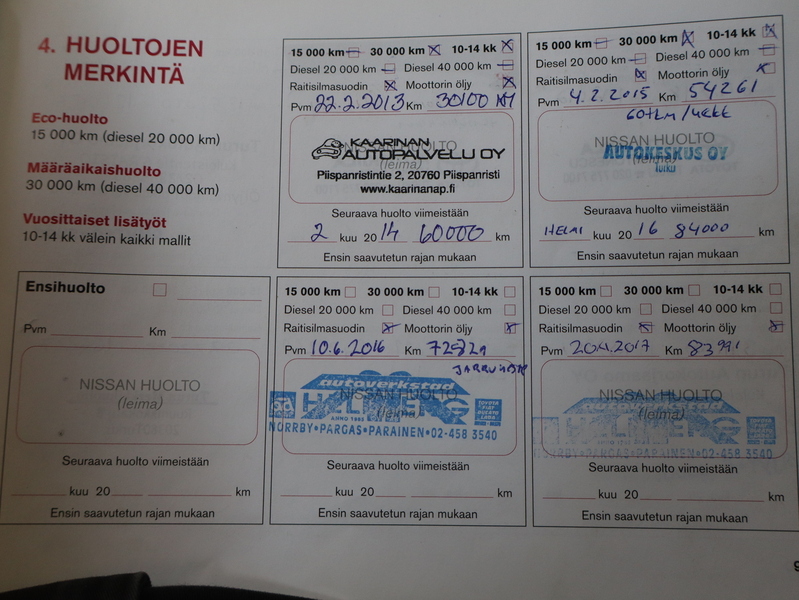 4. HUOLTOJEN
MERKINTÄ
Eco-huolto
15 000 km (diesel 20 000 km)
Määräaikaishuolto
30 000 km (diesel 40 000 km)
Vuosittaiset lisätyöt
10-14 kk välein kaikki mallit
15 000 km 30 000 km 10-14 kk
Diesel 20 000 km Diesel 40 000 km
Raitisilmasuodin Moottorin öljy
Pvm 22.2.2013 Km 30100 KM
NISSAN HUOLTO
(leima)
KAARINAN
AUTOPALVELU OY
Piispanristintie 2, 20760 Piispanristi
www.kaarinanap.fi
Seuraava huolto viimeistään
2 kuu 20 14 60000 km
Ensin saavutetun rajan mukaan
15 000 km 30 000 km 10-14 kk
Diesel 20 000 km Diesel 40 000 km
Raitisilmasuodin Moottorin öljy
Pvm 4.2.2015 Km 54261
NISSAN HUOLTO
(leima)
AUTOKESKUS OY
Turku
Seuraava huolto viimeistään
HELMI kuu 20 16 84000 km
Ensin saavutetun rajan mukaan
Ensihuolto
Pvm Km
NISSAN HUOLTO
(leima)
Seuraava huolto viimeistään
kuu 20 km
Ensin saavutetun rajan mukaan
15 000 km 30 000 km 10-14 kk
Diesel 20 000 km Diesel 40 000 km
Raitisilmasuodin Moottorin öljy
Pvm 10.6.2016 Km
NISSAN HUOLTO
autoverkstad
HALMBERG
ANNO 1965
NORRBY•PARGAS•PARAINEN•02-458 3540
Seuraava huolto viimeistään
kuu 20 km
Ensin saavutetun rajan mukaan
15 000 km 30 000 km 10-14 kk
Diesel 20 000 km Diesel 40 000 km
Raitisilmasuodin Moottorin öljy
Pvm Km
NISSAN HUOLTO
(leima)
autoverkstad
HALMBERG
NORRBY•PARGAS•PARAINEN•02-458 3540
Seuraava huolto viimeistään
kuu 20 km
Ensin saavutetun rajan mukaan